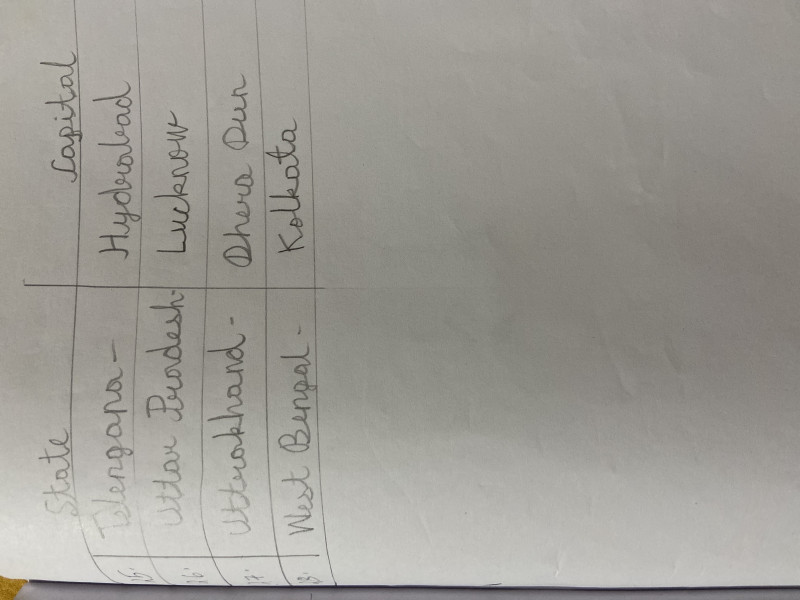 State Capital
Telengana - Hydrabad
Uttar Pradesh - Lucknow
Uttrakhand - Dhera Dun
West Bengal - Kolkata